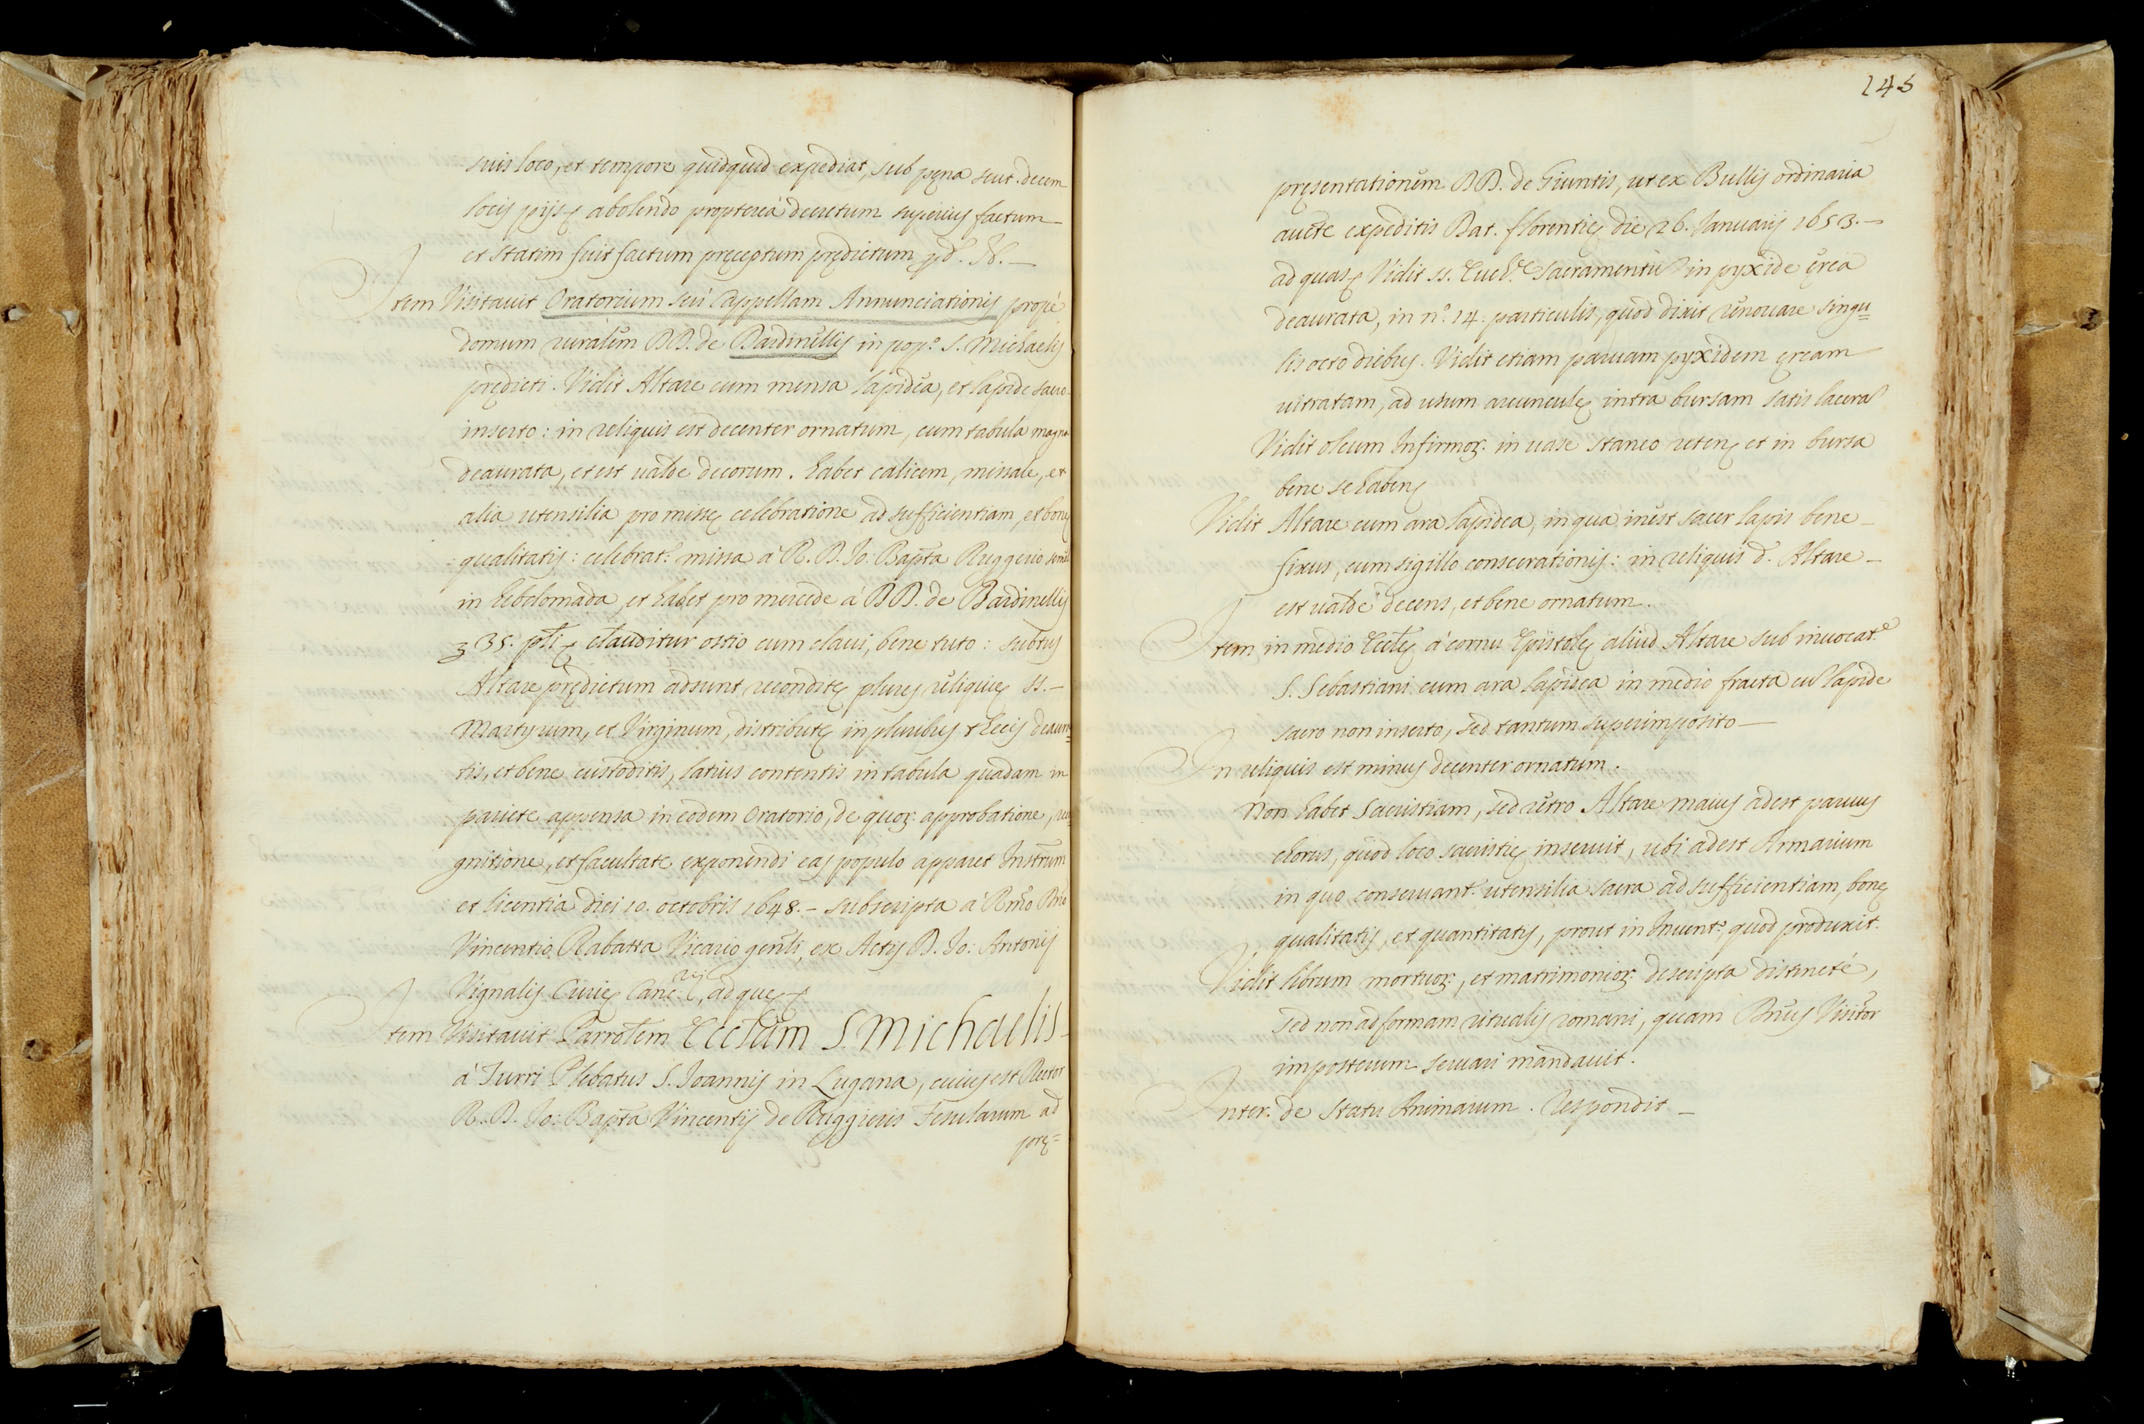 suis loco, et tempore quidquid expediat, sub pęna scut. decem
locis pijs, abolendo propterea decretum superius factum
et statim fuit factum pręceptum prędictum
Item Visitauit Oratorium seù Cappellam Annunciationis propè
domum ruralem DD. de Bardinellis in pop.º S. Michaelis
prędicti. Vidit Altare cum mensa lapidea, et lapide sacro
inserto: in reliquis est decenter ornatum, cum tabula magna
deaurata, et est ualde decorum. habet calicem, missale, et
alia utensilia pro missę celebratione ad sufficientiam, et bonę
qualitatis: celebrat.r missa à R. D. Io: Bapta Ruggerio semel
in hebdomada et habet pro mercede à DD. de Bardinellis
35. clauditur ostio cum claui, bene tuto: subtus
Altare prędictum adsunt reconditę plures reliquię SS.
Martyrum, et Virginum, distributę in pluribus thecis deaura=
tis, et bene custoditis, latius contentis in tabula quadam in
pariete appensa in eodem Oratorio, de quor: approbatione, reco
gnitione, et facultate exponendi eas populo apparet Instrum
et licentia diei 10. octobris 1648. - subscripta à Rmo Dno
Vincentio Rabatta Vicario genli, ex Actis D. Io: Antonij
Vignalis Curię Canc.rij, ad quę
Item Visitauit Parrolem Ecclam S. Michaelis
à Turri Plebatus S. Ioannis in Sugana, cuius est Rector
R. D. Io: Bapta Vincentij de Ruggieris Fesularum ad
prę=
145
pręsentationem DD. de Giuntis, ut ex Bullis ordinaria
aucte expeditis Dat. florentię die 26. Ianuarij 1653.
ad quas. Vidit SS. Euch.e Sacramentũ in pyxide ęrea
deaurata, in n.º 14. particulis, quod dixit renouare singu=
lis octo diebus. Vidit etiam paruam pyxidem ęream
uitratam, ad usum arcunculę intra bursam satis lacerã
Vidit oleum Infirmor. in uase staneo reten, et in bursa
bene se habens
Vidit Altare cum ara lapidea, in qua inest sacer lapis bene
fixus, cum sigillo consecrationis: in reliquis d. Altare
est ualdè decens, et bene ornatum.
Item in medio Ecclę à cornu Epistolę aliud Altare sub inuocat.e
S. Sebastiani cum ara lapidea in medio fracta cũ lapide
sacro non inserto, sed tantum superimposito
In reliquis est minus decenter ornatum.
Non habet Sacristiam, sed retro Altare maius adest paruus
chorus, quod loco sacristię inseruit, ubi adest Armarium
in quo conseruant.r utensilia sacra ad sufficientiam, bonę
qualitatis, et quantitatis, prout in Inuent.º quod produxit.
Vidit librum mortuor:, et matrimonior: descripta distinctè,
sed non ad formam ritualis romani, quam Dnus Visitor
imposterum seruari mandauit.
Inter. de statu Animarum. Respondit